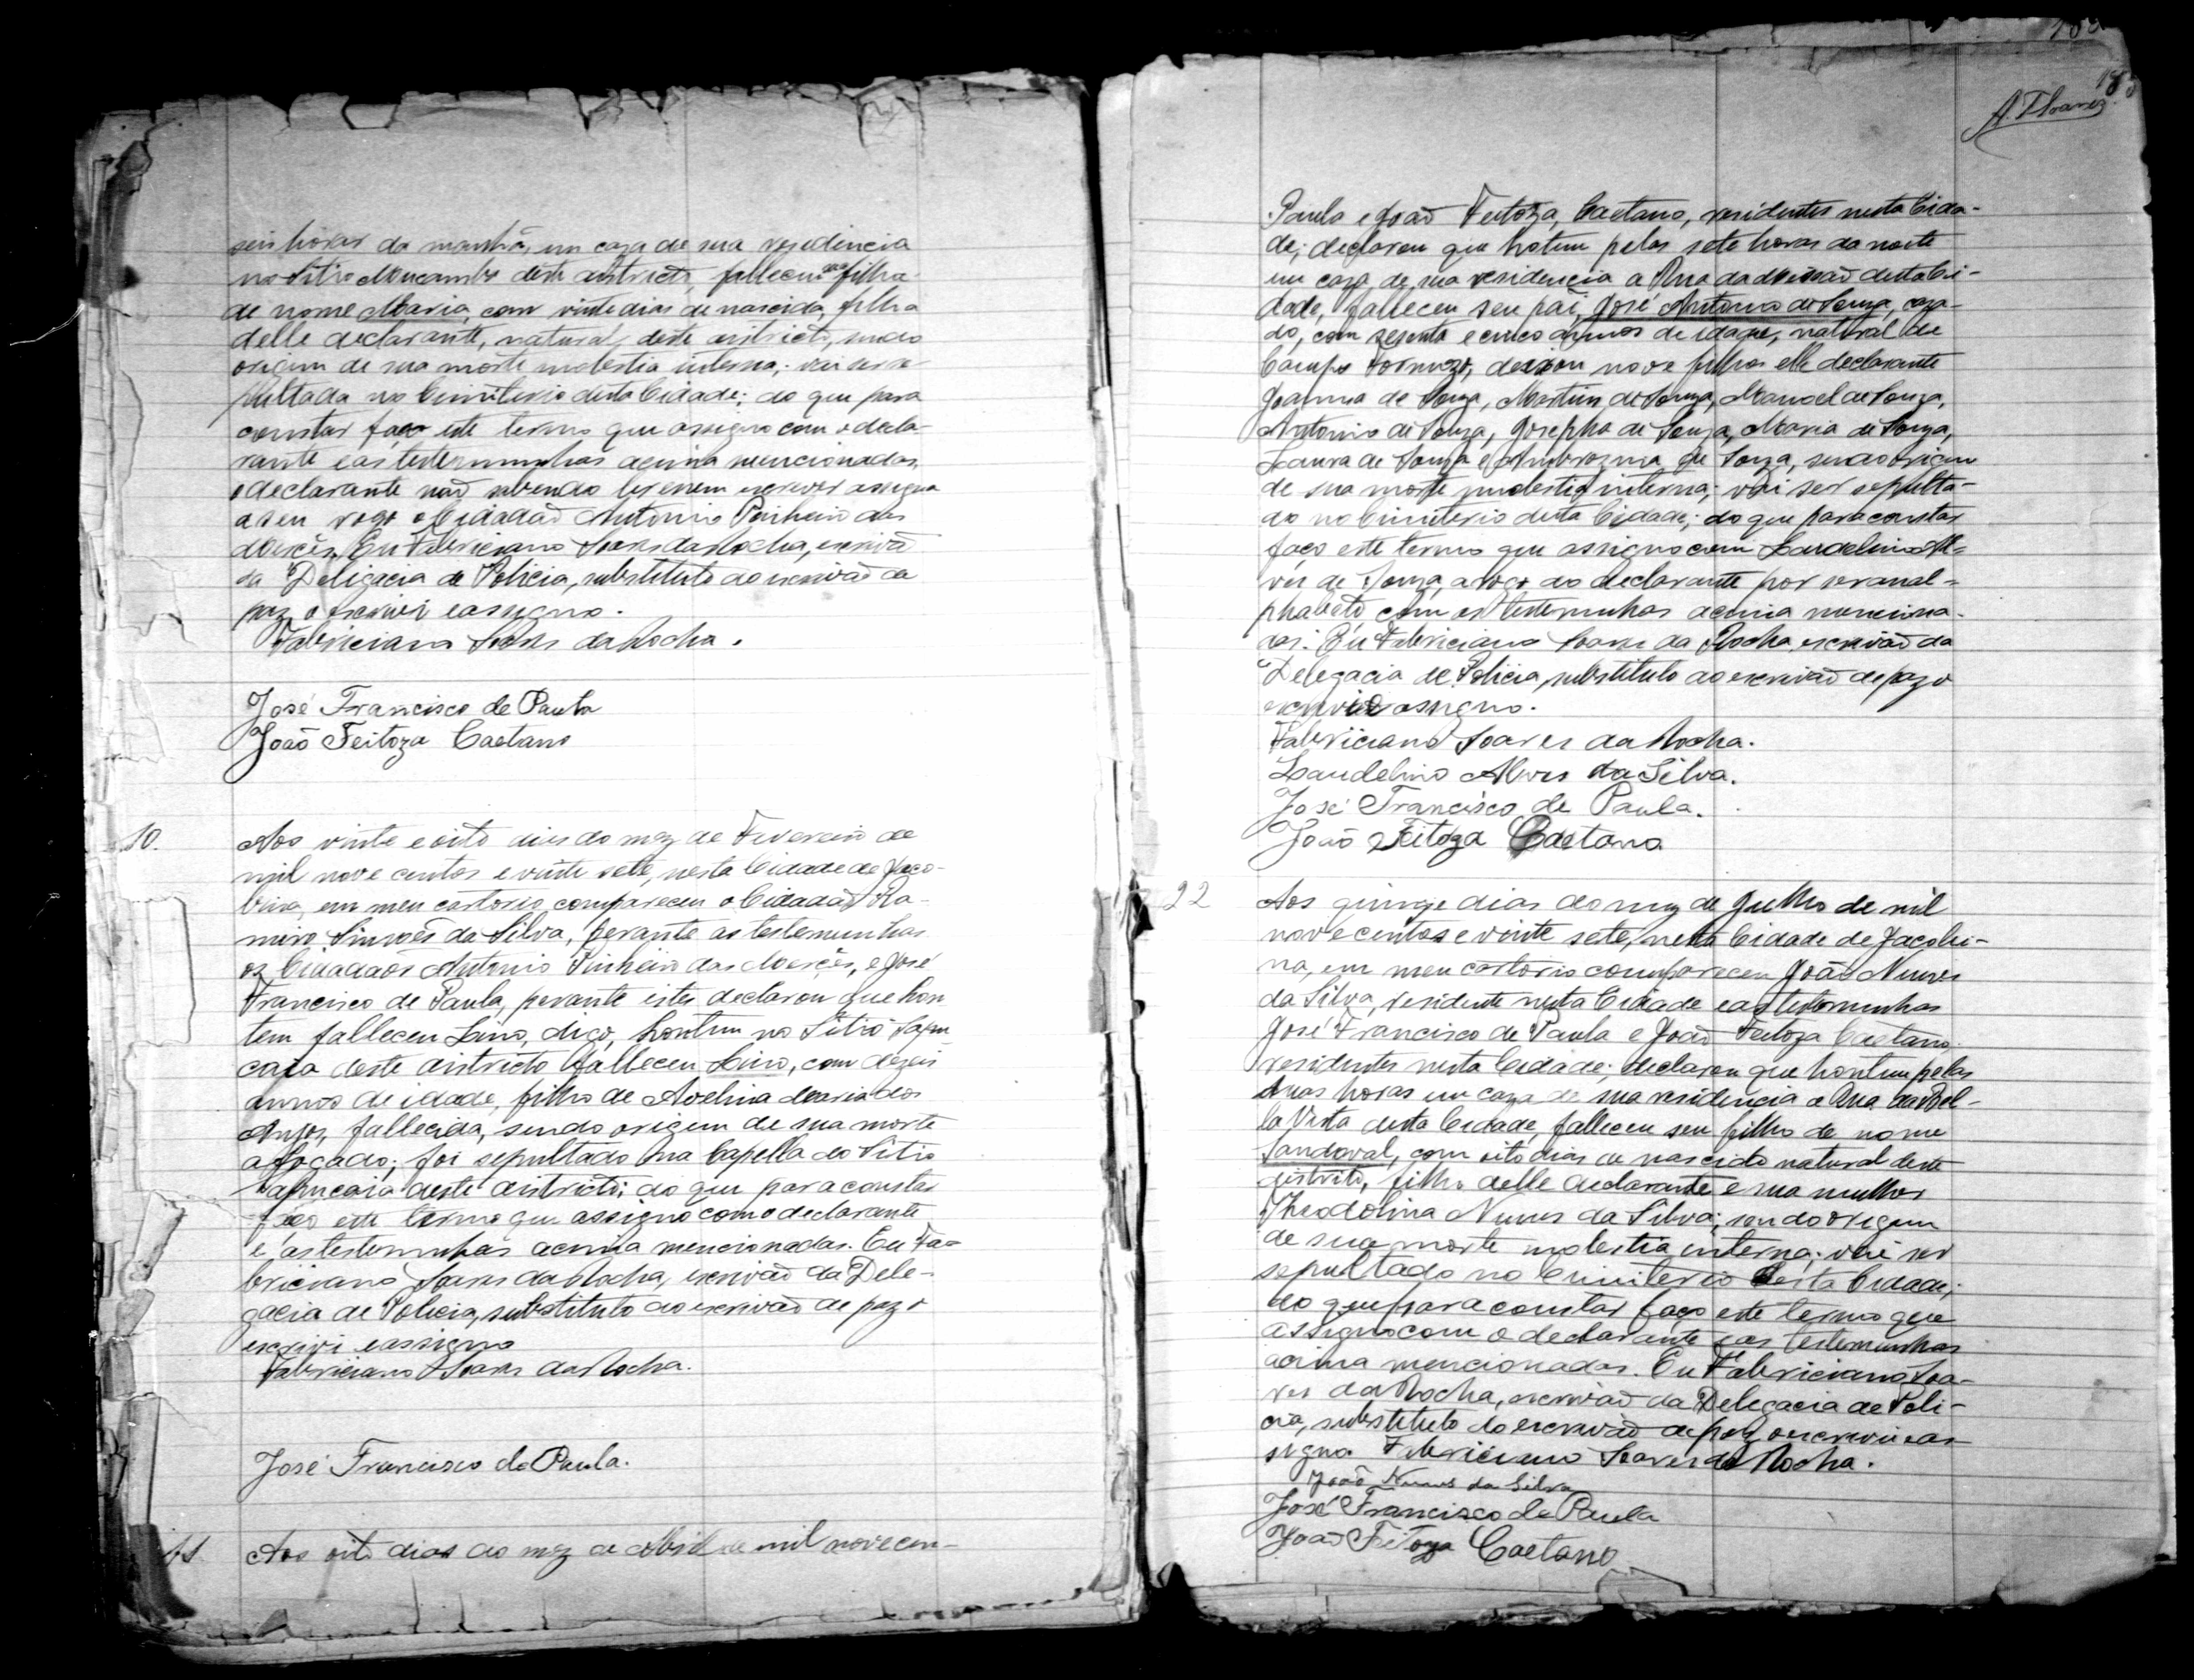 seis horas da manhã, em caza de sua residencia
no Sitio Mocambo deste districto, falleceu sua filha
de nome Maria, com vinte dias de nascida, filha
delle declarante, natural deste districto, sendo
origem de sua morte molestia interna; vai ser se-
pultada no Cimiterio desta Cidade; do que para
constar faço este termo que assigno com o decla-
rante e as testemunhas acima mencionadas,
o declarante não sabendo ler e nem escrever assigna
a seu rogo o Cidadão Antonio Pinheiro das
Mercês. Eu Fabriciano Soares da Rocha, escrivão
da Deligacia de Policia, substituto do escrivão de
paz o escrivi e assigno.
Fabriciano Soares da Rocha.
José Francisco de Paula
João Feitoza Caetano
10. Aos vinte e oito dias do mez de Fevereiro de
mil nove centos e vinte sete, nesta Cidade de Jaco-
bina, em meu cartorio, compareceu o Cidadão Ra-
miro Simões da Silva, perante as testemunhas
os Cidadãos Antonio Pinheiro das Mercês, e José
Francisco de Paula, perante estes declarou que hon
tem falleceu Lino, digo, hontem no Sitio Sapu
caia deste districto falleceu Lino, com dezeis
annos de idade, filho de Avelina Maria dos
Anjos, fallecida, sendo origem de sua morte
afogado; foi sepultado na Capella do Sitio
Sapucaia deste districto; do que para constar
faço este termo que assigno com o declarante
e as testemunhas acima mencionadas. Eu Fa-
briciano Soares da Rocha, escrivão da Dele-
gacia de Policia, substituto do escrivão de paz o
escrivi e assigno
Fabriciano Soares da Rocha.
José Francisco de Paula.
11 Aos oito dias do mez de Abril de mil nove cen-
183
A. Tharez
Paula e João Feitoza, Caetano, residentes nesta Cida-
de; declarou que hotem pelas sete horas da noite
em caza de sua residencia a Rua da Missão desta Ci-
dade, falleceu seu pai, José Antonio de Souza, caza-
do, com sesenta e cinco annos de idade, natural de
Campo Formozo, deixou nove filhos elle declarante
Joanna de Souza, Martim de Souza, Manoel de Souza,
Antonio de Souza, Josepha de Souza, Maria de Souza,
Laura de Souza e Ambrozina de Souza, sendo origem
de sua morte molestia interna; vai ser sepulta-
do no Cimiterio desta Cidade; do que para constar
faço este termo que assigno com Laudelino Al-
ves de Souza, a rogo do declarante por ser anal-
phabeto com as testemunhas acima menciona-
das. Eu Fabriciano Soares da Rocha, escrivão da
Delegacia de Policia, substituto do escrivão de paz o
escrivi e assigno.
Fabriciano Soares da Rocha.
Laudelino Alves da Silva.
José Francisco de Paula.
João Feitoza Caetano
22 Aos quinze dias do mez de Julho de mil
nove centos e vinte sete, nesta Cidade de Jacobi-
na, em meu cartorio compareceu João Nunes
da Silva, residente nesta Cidade e as testemunhas
José Francisco de Paula e João Feitoza Caetano,
residentes nesta Cidade; declarou que hontem pelas
duas horas em caza de sua residencia a Rua da Bel-
la Vista desta Cidade, falleceu seu filho de nome
Sandoval, com oito dias de nascido natural deste
distrito, filho delle declarante e sua mulher
Theodolina Nunes da Silva; sendo origem
de sua morte molestia interna; vai ser
sepultado no Cimiterio desta Cidade;
do que para constar faço este termo que
assigno com o declarante e as testemunhas
acima mencionadas. Eu Fabriciano Soa-
res da Rocha, escrivão da Delegacia de Poli-
cia, substituto do escrivão de paz o escrivi e as-
signo Fabriciano Soares da Rocha.
João Nunes da Silva
José Francisco de Paula
João Feitoza Caetano